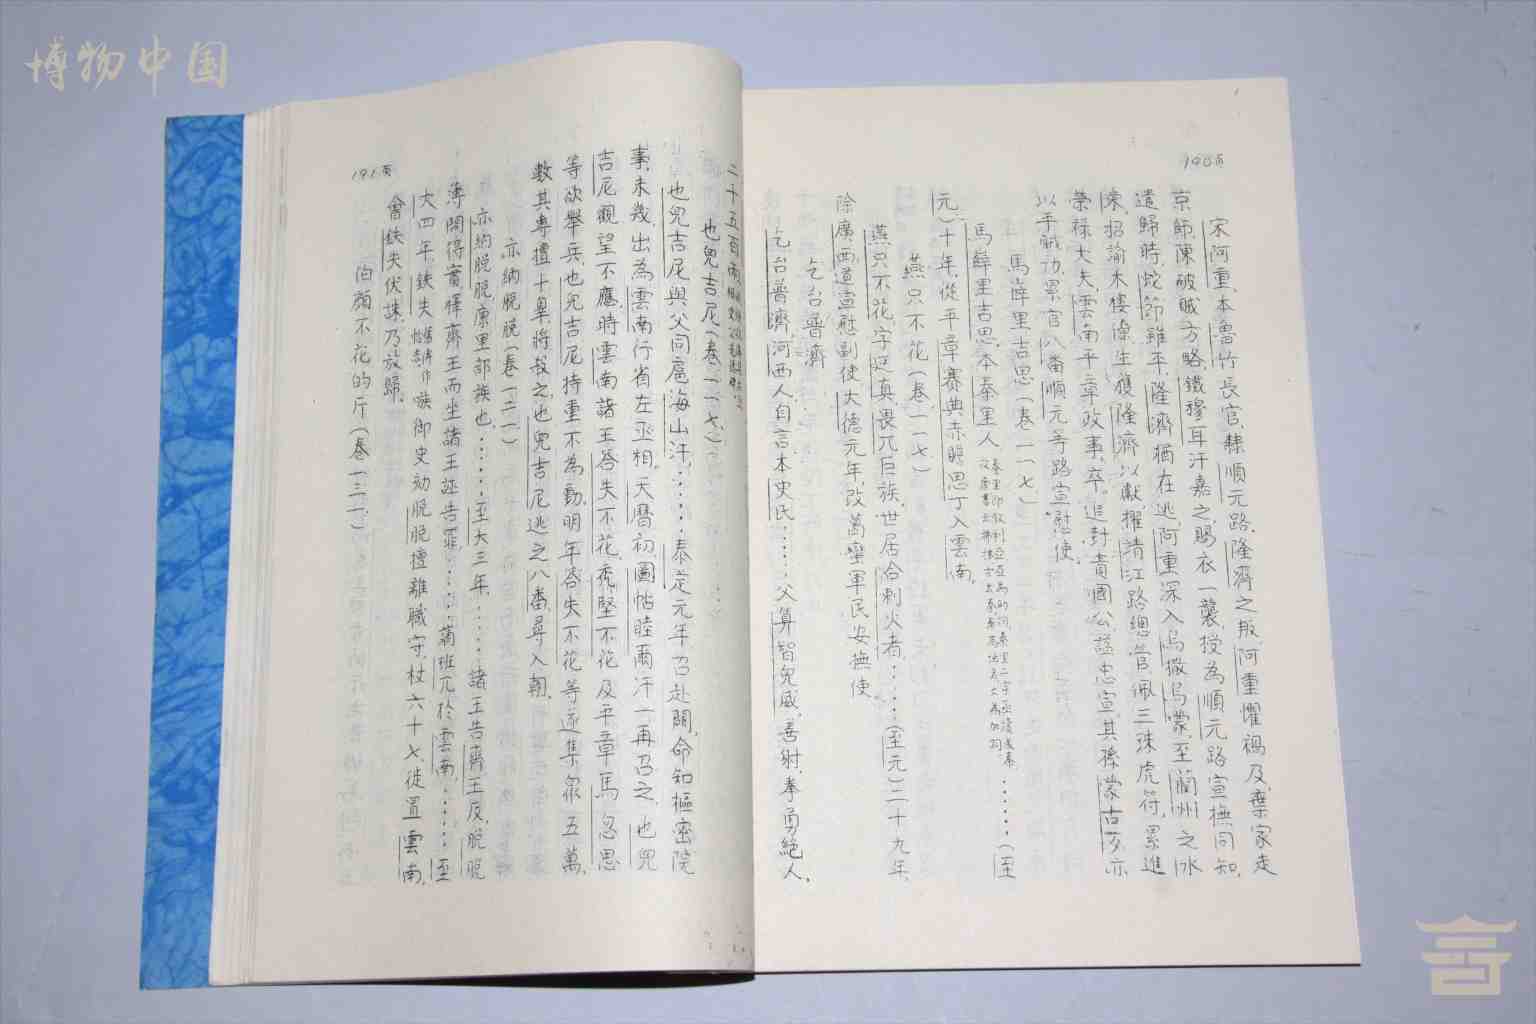 博物中国
190页
宋阿重，本魯竹長官，隸順元路，隆濟之叛，阿重懼禍及，棄家走
京師，陳破賊方略，鐵穆耳汗嘉之，賜衣一襲，授為順元路宣撫同知，
遣歸，時蛇節雖平，隆濟猶在逃，阿重深入烏撒、烏蒙，至藺州之水
東，招諭木樓濞，生獲隆濟以獻，擢靖江路總管，佩三珠虎符，累進
榮祿大夫，雲南平章政事，卒，追封貴國公，諡忠宣，其孫蒙古歹亦
以平賊功，累官八番順元等路宣慰使。
馬薛里吉思（卷一一七）
馬薛里吉思，本秦里人
……（至
元）十年，從平章賽典赤贍思丁入雲南，
燕只不花（卷一一七）
燕只不花，字延真，畏兀巨族，世居合剌火者，……（至元）二十九年，
除廣西道宣慰副使，大德元年，改萬蠻軍民安撫使，
乞台普濟
乞台普濟，河西人，自言本史氏，……父算智兒威，善射，拳勇絕人，
二千五百兩，
也兒吉尼（卷一一七）
也兒吉尼與父同扈海山汗，……泰定元年，召赴闕，命知樞密院
事，未幾，出為雲南行省左丞相，天曆初，圖帖睦爾汗一再召之，也兒
吉尼觀望不應，時雲南諸王答失不花、禿堅不花及平章馬忽思
等欲舉兵，也兒吉尼持重不為動，明年，答失不花等遂集眾五萬，
數其專擅十臬，將殺之，也兒吉尼逃之八番，尋入朝。
亦納脫脫（卷一二一）
亦納脫脫，康里部族也，……至大三年，……諸王告齊王反，脫脫
簿問得實，釋齊王而坐諸王誣告罪，……藺班兀於雲南，……至
大四年，鐵失嗾御史劾脫脫擅離職守，杖六十七，徙置雲南，
會鐵失伏誅，乃放歸，
伯顏不花的斤（卷一三一）
191页